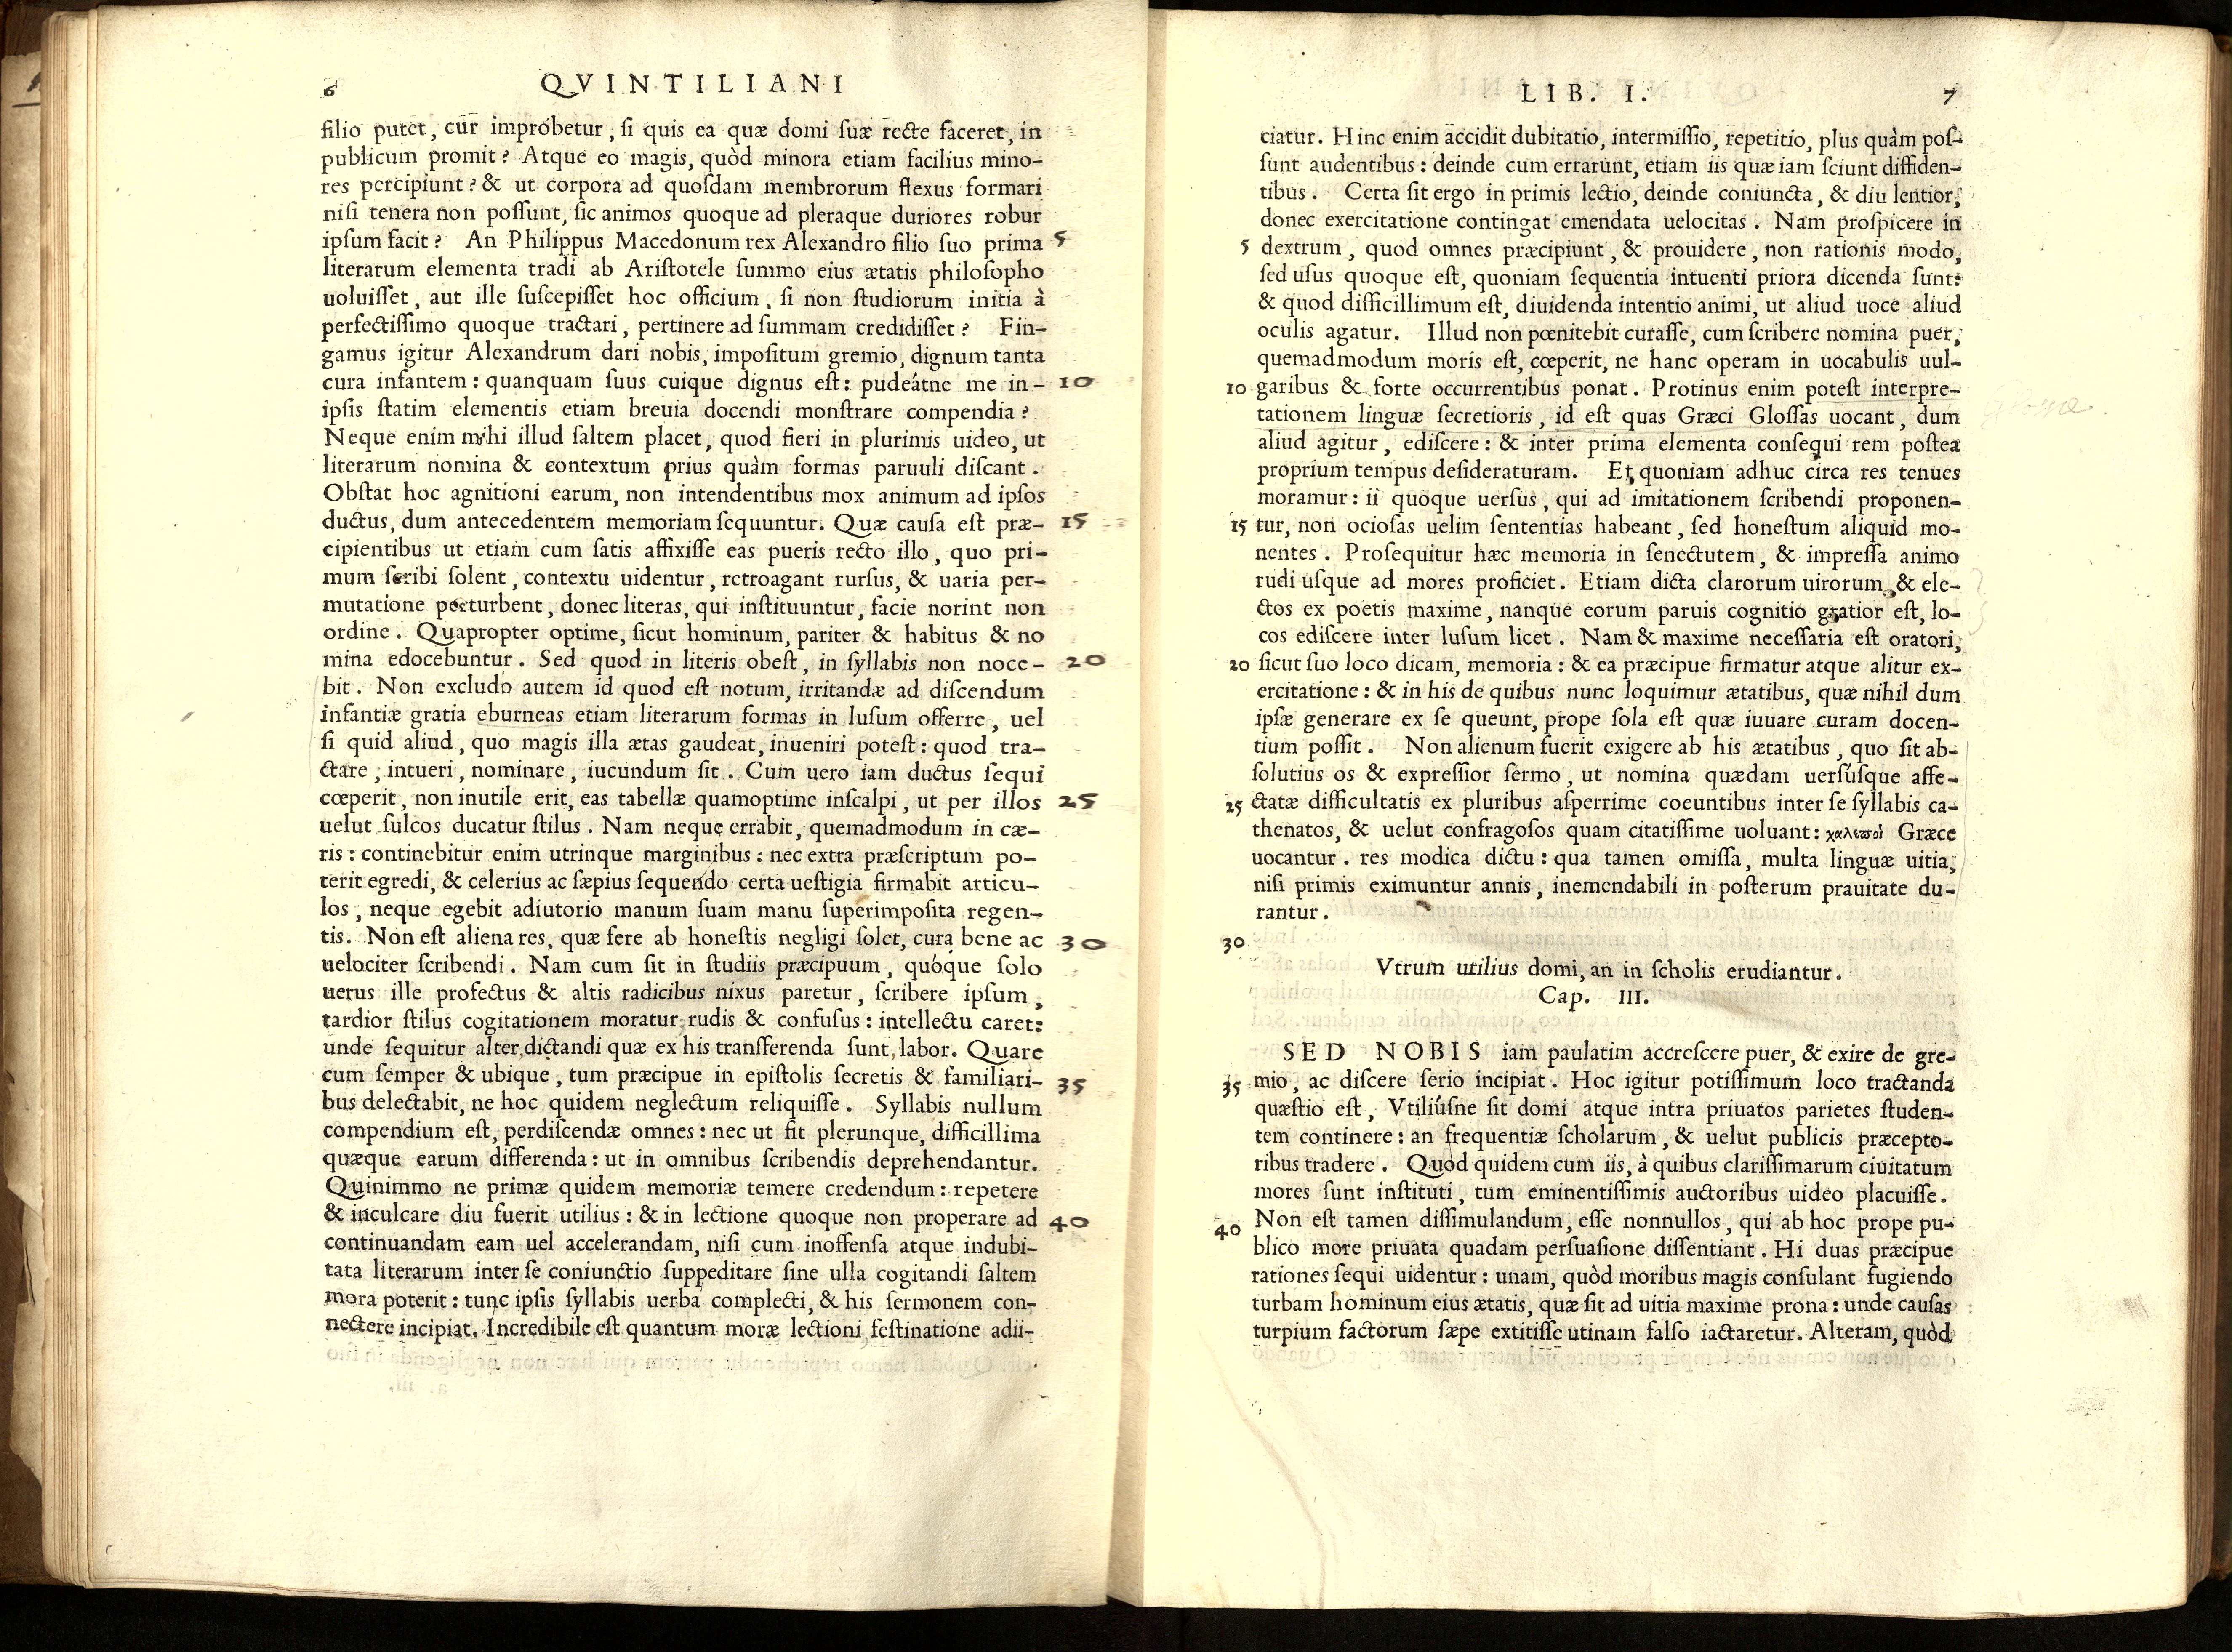 6
QVINTILIANI
filio putet, cur improbetur, ſi quis ea quæ domi ſuæ recte faceret, in
publicum promit? Atque eo magis, quòd minora etiam facilius mino-
res percipiunt? & ut corpora ad quoſdam membrorum flexus formari
niſi tenera non poſſunt, ſic animos quoque ad pleraque duriores robur
ipſum facit? An Philippus Macedonum rex Alexandro filio ſuo prima 5
literarum elementa tradi ab Ariſtotele ſummo eius ætatis philoſopho
uoluiſſet, aut ille ſuſcepiſſet hoc officium, ſi non ſtudiorum initia à
perfectiſſimo quoque tractari, pertinere ad ſummam credidiſſet? Fin-
gamus igitur Alexandrum dari nobis, impoſitum gremio, dignum tanta
cura infantem: quanquam ſuus cuique dignus eſt: pudeátne me in- 10
ipſis ſtatim elementis etiam breuia docendi monſtrare compendia?
Neque enim mihi illud ſaltem placet, quod fieri in plurimis uideo, ut
literarum nomina & contextum prius quàm formas paruuli diſcant.
Obſtat hoc agnitioni earum, non intendentibus mox animum ad ipſos
ductus, dum antecedentem memoriam ſequuntur. Quæ cauſa eſt præ- 15
cipientibus ut etiam cum ſatis affixiſſe eas pueris recto illo, quo pri-
mum ſcribi ſolent, contextu uidentur, retroagant rurſus, & uaria per-
mutatione perturbent, donec literas, qui inſtituuntur, facie norint non
ordine. Quapropter optime, ſicut hominum, pariter & habitus & no
mina edocebuntur. Sed quod in literis obeſt, in ſyllabis non noce- 20
bit. Non excludo autem id quod eſt notum, irritandæ ad diſcendum
infantiæ gratia eburneas etiam literarum formas in luſum offerre, uel
ſi quid aliud, quo magis illa ætas gaudeat, inueniri poteſt: quod tra-
ctare, intueri, nominare, iucundum ſit. Cum uero iam ductus ſequi
cœperit, non inutile erit, eas tabellæ quamoptime inſcalpi, ut per illos 25
uelut ſulcos ducatur ſtilus. Nam neque errabit, quemadmodum in cæ-
ris: continebitur enim utrinque marginibus: nec extra præſcriptum po-
terit egredi, & celerius ac ſæpius ſequendo certa ueſtigia firmabit articu-
los, neque egebit adiutorio manum ſuam manu ſuperimpoſita regen-
tis. Non eſt aliena res, quæ fere ab honeſtis negligi ſolet, cura bene ac 30
uelociter ſcribendi. Nam cum ſit in ſtudiis præcipuum, quóque ſolo
uerus ille profectus & altis radicibus nixus paretur, ſcribere ipſum,
tardior ſtilus cogitationem moratur, rudis & confuſus: intellectu caret:
unde ſequitur alter, dictandi quæ ex his transferenda ſunt, labor. Quare
cum ſemper & ubique, tum præcipue in epiſtolis ſecretis & familiari- 35
bus delectabit, ne hoc quidem neglectum reliquiſſe. Syllabis nullum
compendium eſt, perdiſcendæ omnes: nec ut fit plerunque, difficillima
quæque earum differenda: ut in omnibus ſcribendis deprehendantur.
Quinimmo ne primæ quidem memoriæ temere credendum: repetere
& inculcare diu fuerit utilius: & in lectione quoque non properare ad 40
continuandam eam uel accelerandam, niſi cum inoffenſa atque indubi-
tata literarum inter ſe coniunctio ſuppeditare ſine ulla cogitandi ſaltem
mora poterit: tunc ipſis ſyllabis uerba complecti, & his ſermonem con-
nectere incipiat. Incredibile eſt quantum moræ lectioni feſtinatione adii-
LIB. I. 7
ciatur. Hinc enim accidit dubitatio, intermiſſio, repetitio, plus quàm poſ-
ſunt audentibus: deinde cum errarunt, etiam iis quæ iam ſciunt diffiden-
tibus. Certa ſit ergo in primis lectio, deinde coniuncta, & diu lentior,
donec exercitatione contingat emendata uelocitas. Nam proſpicere in
5 dextrum, quod omnes præcipiunt, & prouidere, non rationis modo,
ſed uſus quoque eſt, quoniam ſequentia intuenti priora dicenda ſunt:
& quod difficillimum eſt, diuidenda intentio animi, ut aliud uoce aliud
oculis agatur. Illud non pœnitebit curaſſe, cum ſcribere nomina puer,
quemadmodum moris eſt, cœperit, ne hanc operam in uocabulis uul-
10 garibus & forte occurrentibus ponat. Protinus enim poteſt interpre-
tationem linguæ ſecretioris, id eſt quas Græci Gloſſas uocant, dum
aliud agitur, ediſcere: & inter prima elementa conſequi rem poſtea
proprium tempus deſideraturam. Et quoniam adhuc circa res tenues
moramur: ii quoque uerſus, qui ad imitationem ſcribendi proponen-
15 tur, non ocioſas uelim ſententias habeant, ſed honeſtum aliquid mo-
nentes. Proſequitur hæc memoria in ſenectutem, & impreſſa animo
rudi uſque ad mores proficiet. Etiam dicta clarorum uirorum, & ele-
ctos ex poetis maxime, nanque eorum paruis cognitio gratior eſt, lo-
cos ediſcere inter luſum licet. Nam & maxime neceſſaria eſt oratori,
20 ſicut ſuo loco dicam, memoria: & ea præcipue firmatur atque alitur ex-
ercitatione: & in his de quibus nunc loquimur ætatibus, quæ nihil dum
ipſæ generare ex ſe queunt, prope ſola eſt quæ iuuare curam docen-
tium poſſit. Non alienum fuerit exigere ab his ætatibus, quo ſit ab-
ſolutius os & expreſſior ſermo, ut nomina quædam uerſúſque affe-
25 ctatæ difficultatis ex pluribus aſperrime coeuntibus inter ſe ſyllabis ca-
thenatos, & uelut confragoſos quam citatiſſime uoluant: χαλεποὶ Græce
uocantur. res modica dictu: qua tamen omiſſa, multa linguæ uitia,
niſi primis eximuntur annis, inemendabili in poſterum prauitate du-
rantur.
30
Vtrum utilius domi, an in ſcholis erudiantur.
Cap. III.
SED NOBIS iam paulatim accreſcere puer, & exire de gre-
35 mio, ac diſcere ſerio incipiat. Hoc igitur potiſſimum loco tractanda
quæſtio eſt, Vtiliúſne ſit domi atque intra priuatos parietes ſtuden-
tem continere: an frequentiæ ſcholarum, & uelut publicis præcepto-
ribus tradere. Quod quidem cum iis, à quibus clariſſimarum ciuitatum
mores ſunt inſtituti, tum eminentiſſimis auctoribus uideo placuiſſe.
40 Non eſt tamen diſſimulandum, eſſe nonnullos, qui ab hoc prope pu-
blico more priuata quadam perſuaſione diſſentiant. Hi duas præcipue
rationes ſequi uidentur: unam, quòd moribus magis conſulant fugiendo
turbam hominum eius ætatis, quæ ſit ad uitia maxime prona: unde cauſas
turpium factorum ſæpe extitiſſe utinam falſo iactaretur. Alteram, quòd